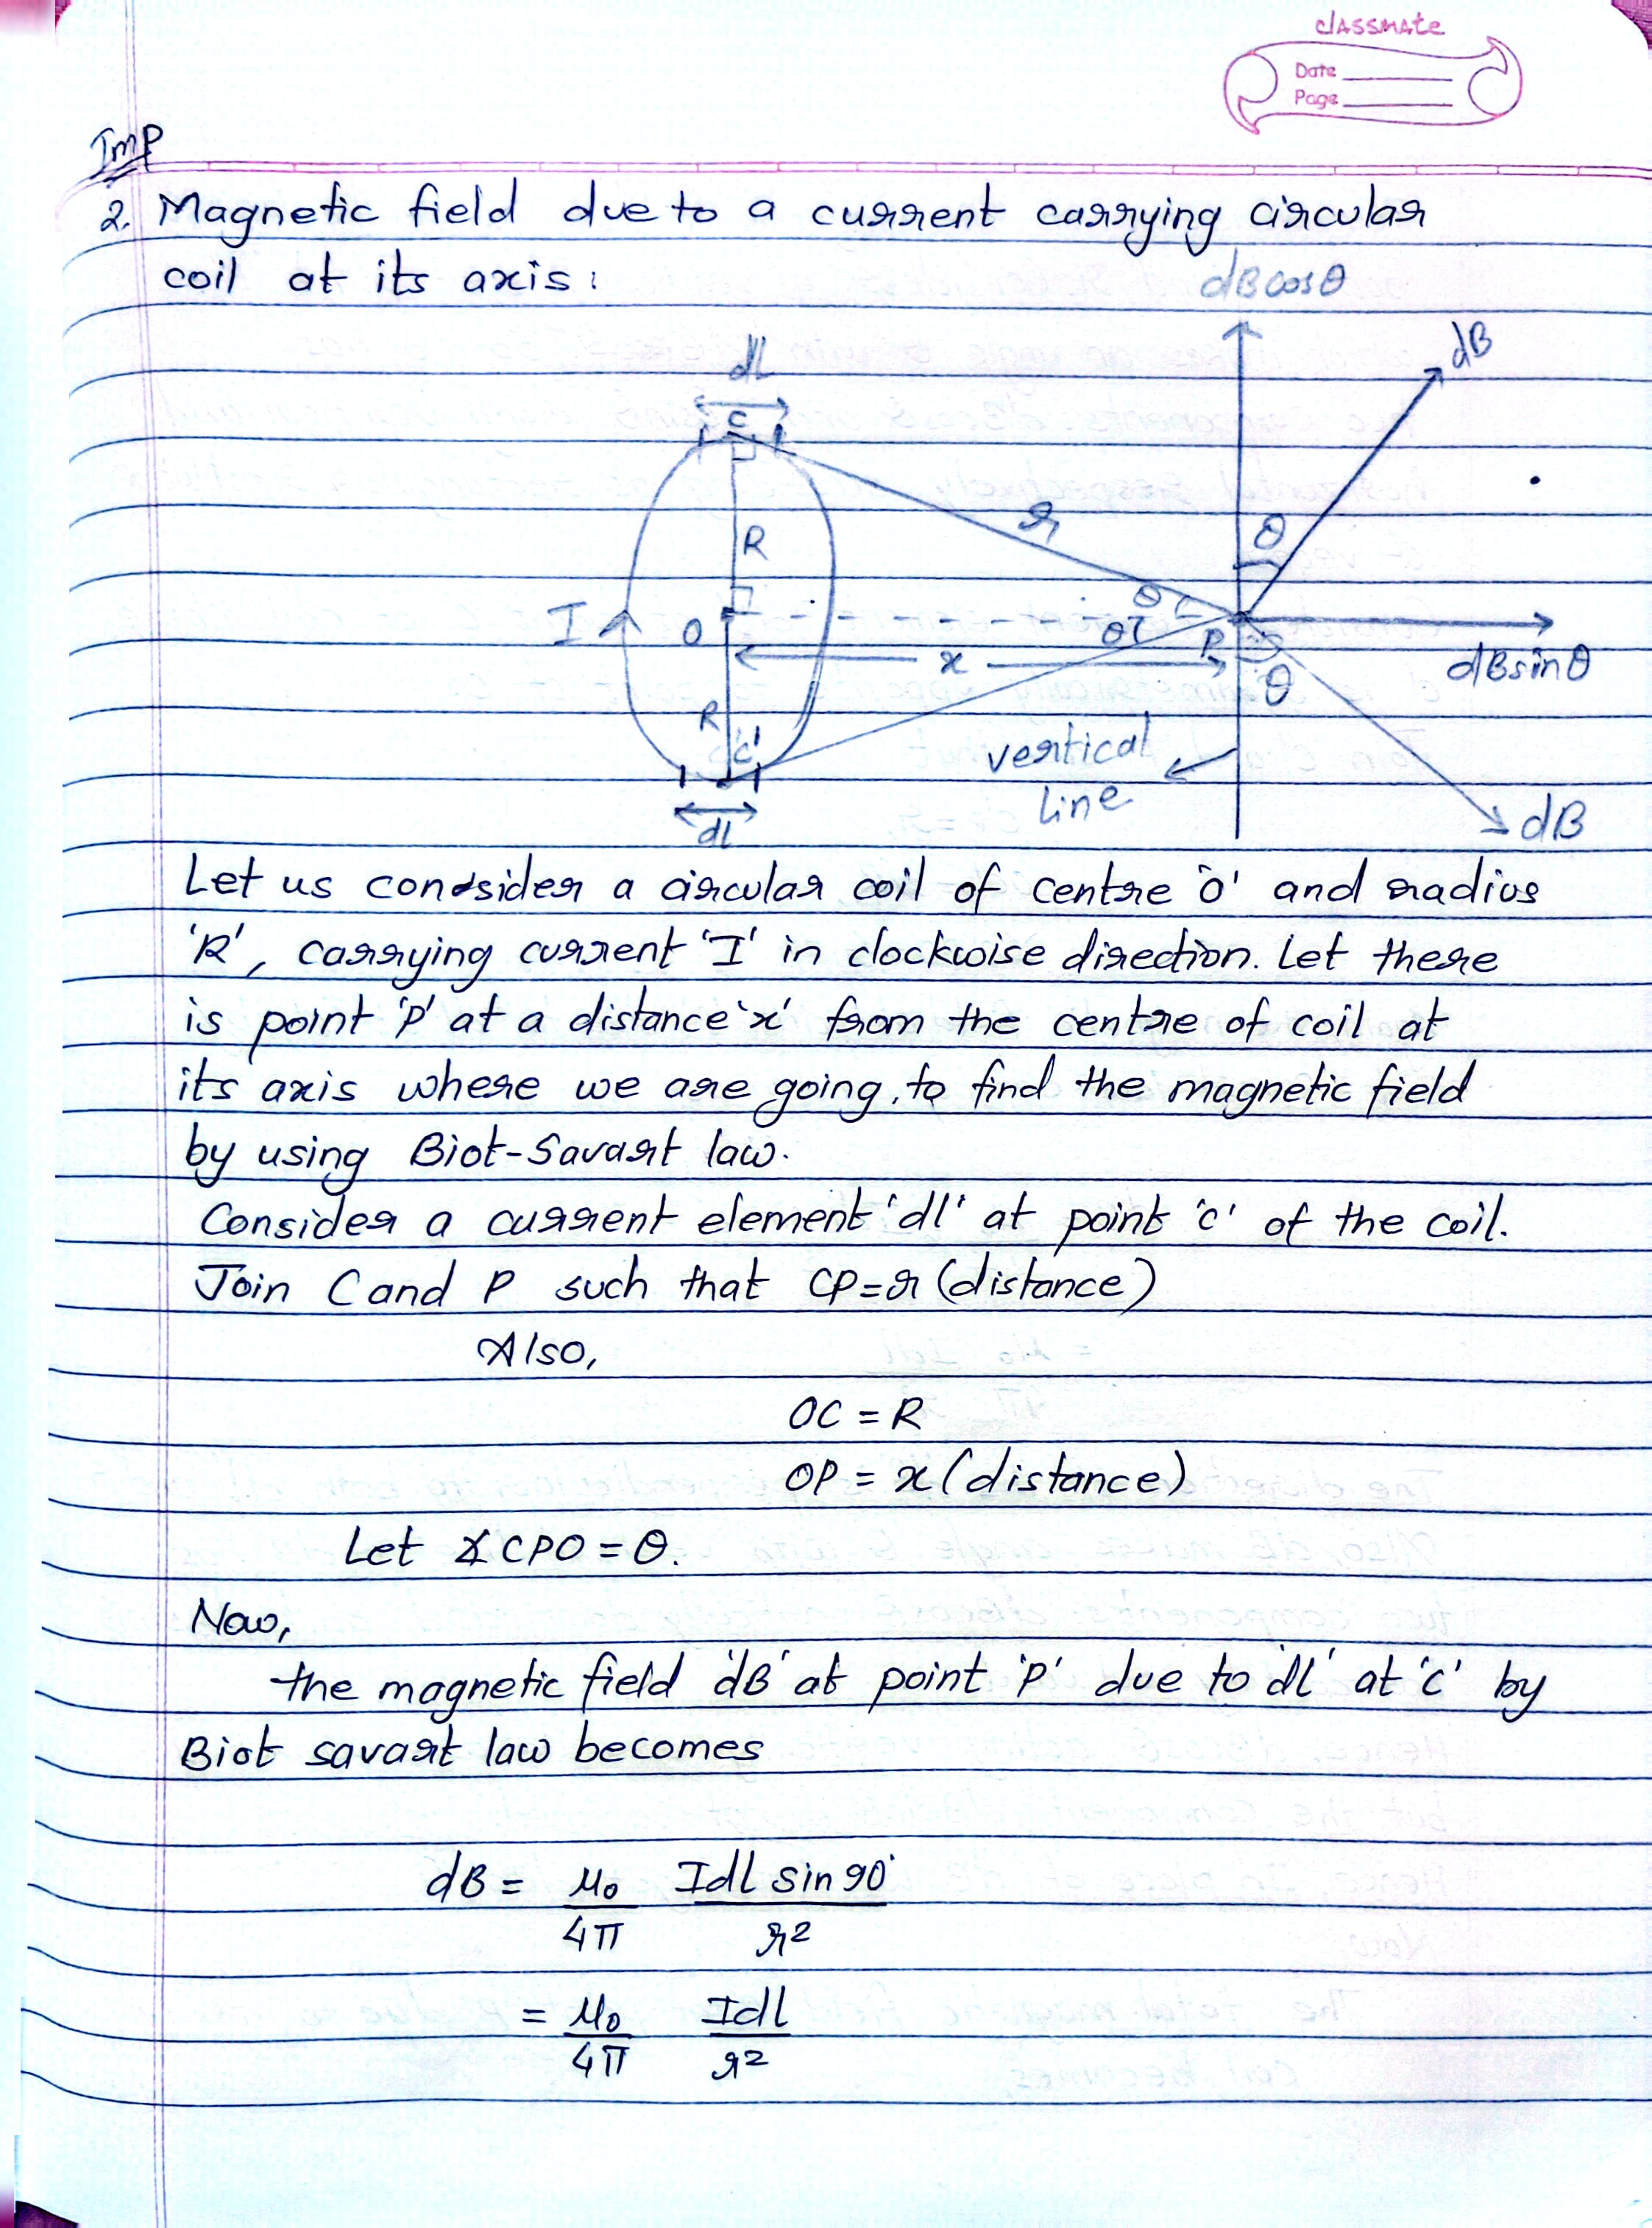 classmate
Date
Page
Imp
2. Magnetic field due to a current carrying circular
coil at its axis:
dBcosθ
dB
dl
C
R
r
θ
θ
I
O
θ
P
x
dBsinθ
θ
R
C'
vertical
line
dl
dB
Let us condsider a circular coil of centre 'O' and radius
'R', carrying current 'I' in clockwise direction. Let there
is point 'P' at a distance 'x' from the centre of coil at
its axis where we are going to find the magnetic field
by using Biot-Savart law.
Consider a current element 'dl' at point 'C' of the coil.
Join C and P such that CP=r (distance)
Also,
OC = R
OP = x (distance)
Let ∡CPO = θ.
Now,
the magnetic field 'dB' at point 'P' due to 'dl' at 'C' by
Biot savart law becomes
dB = μ₀/4π Idl sin90°/r²
= μ₀/4π Idl/r²